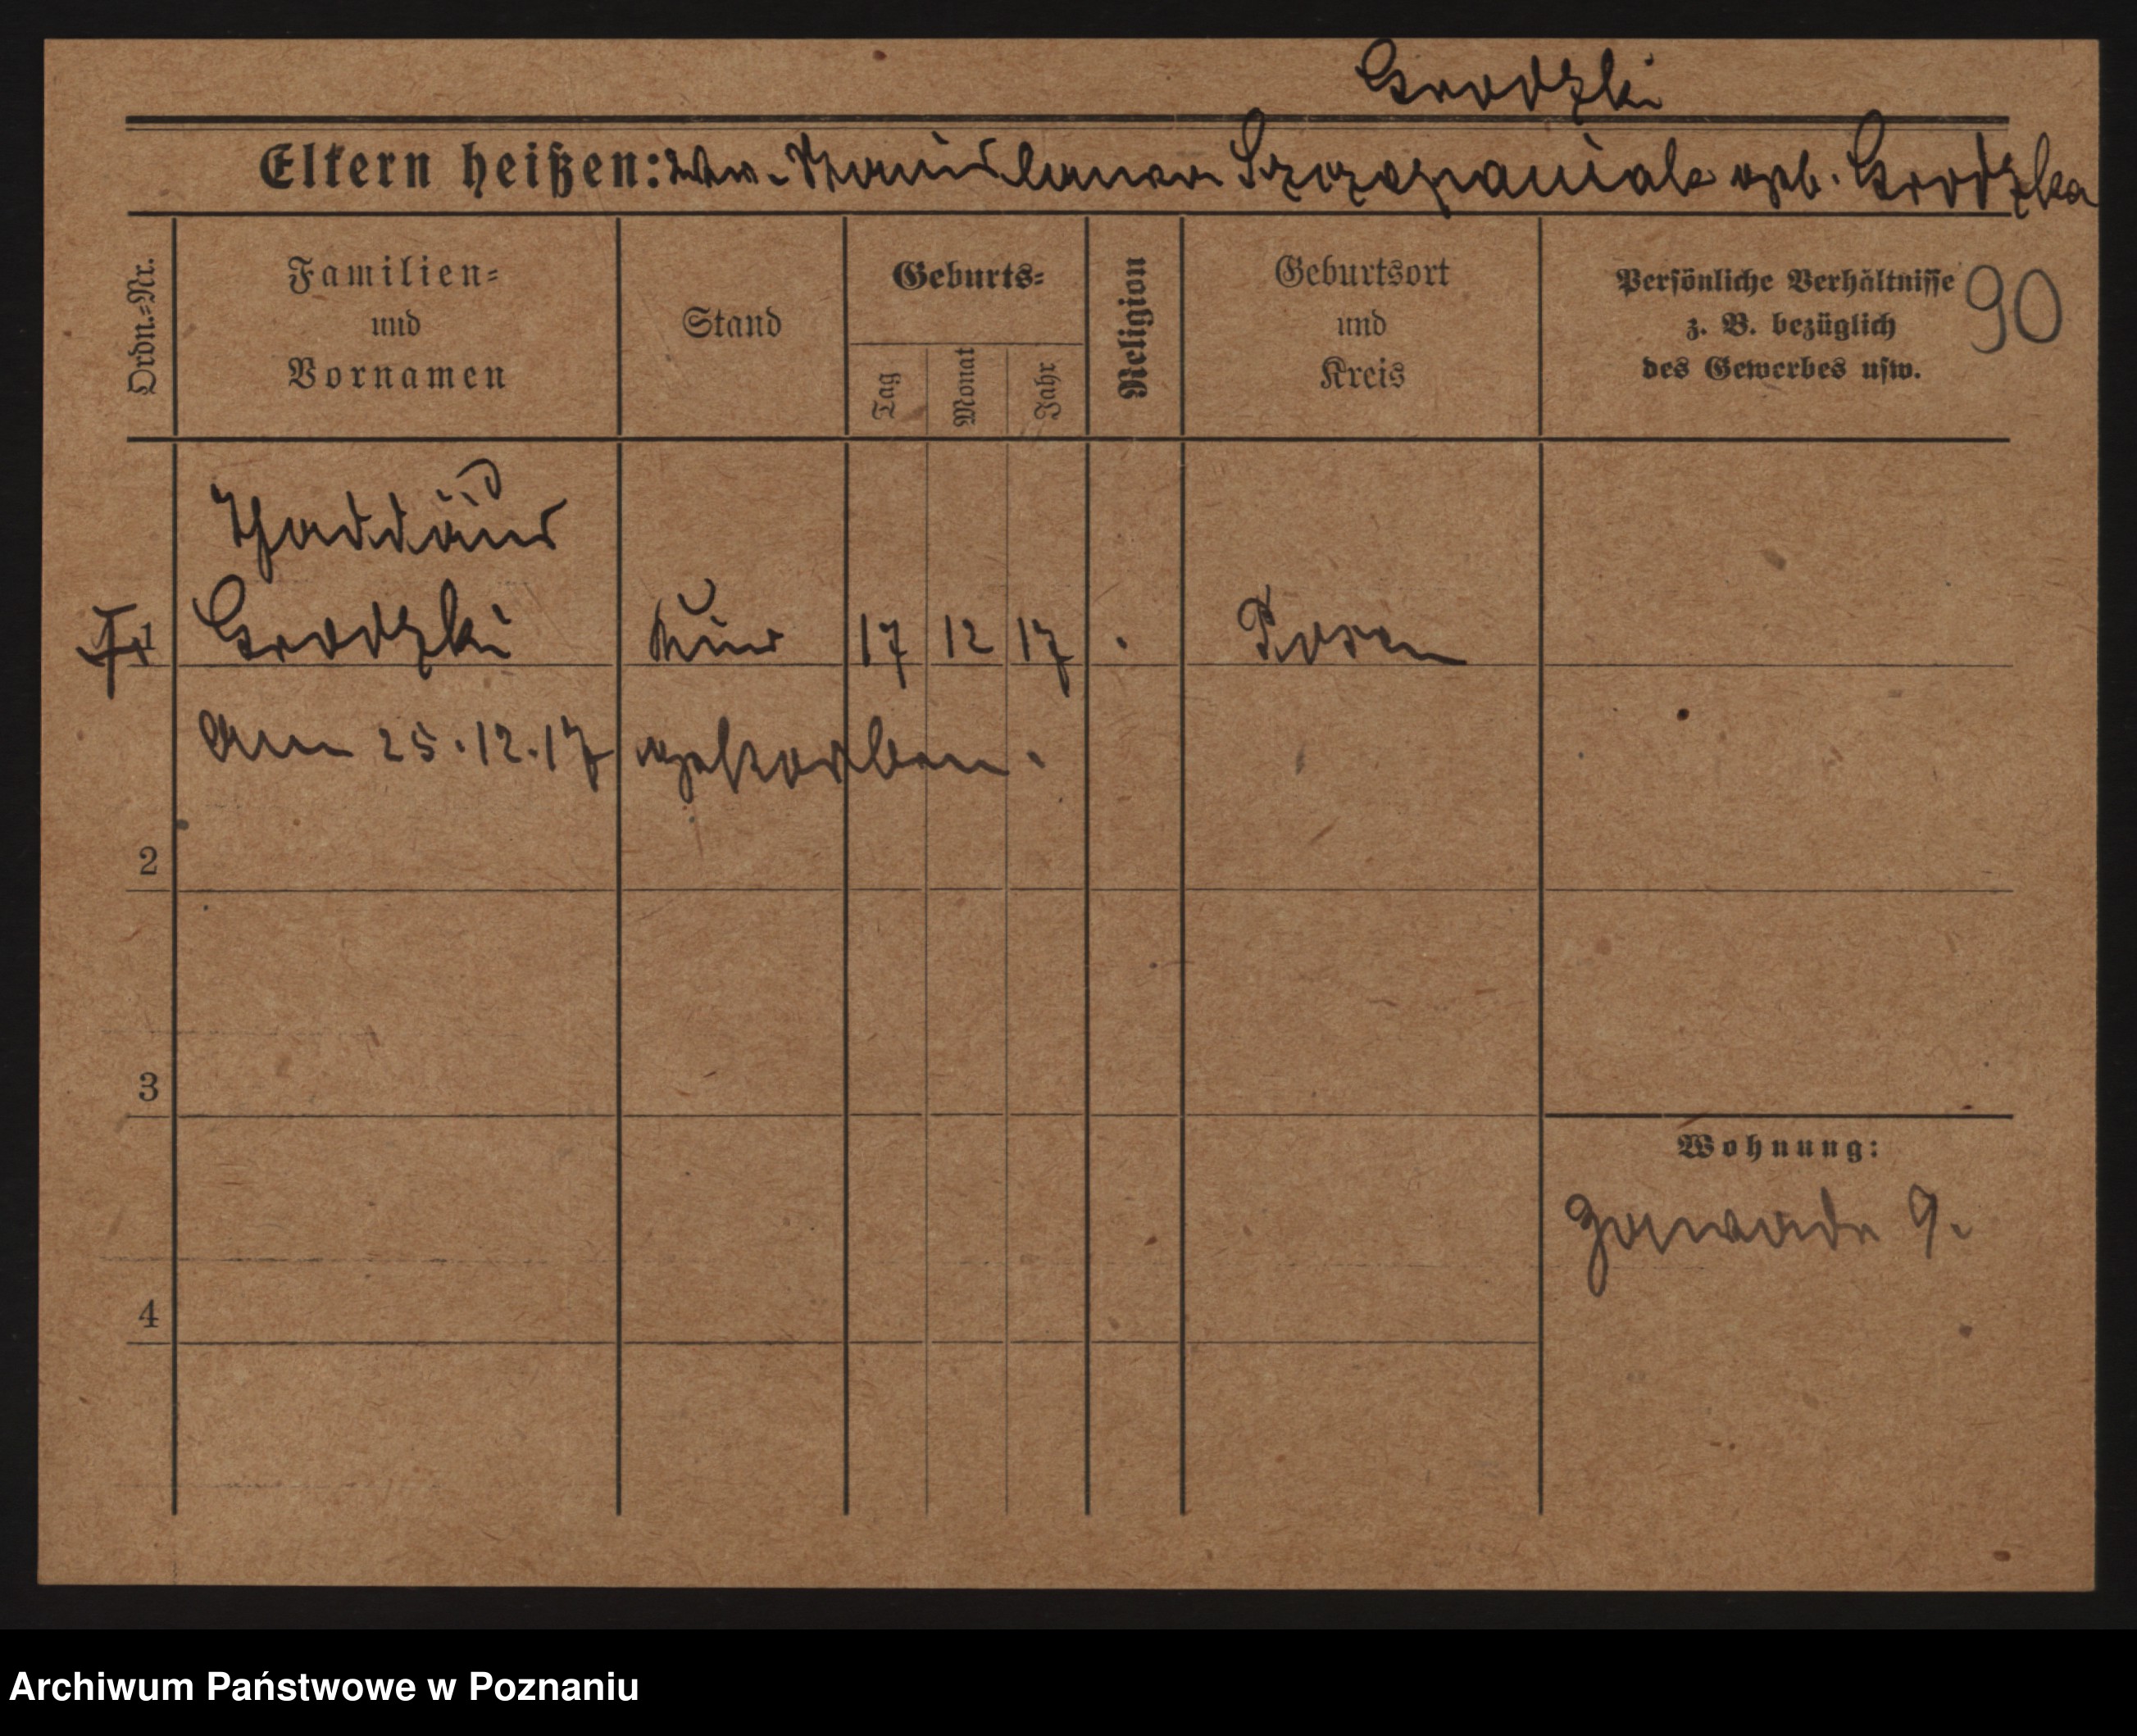 Grodzki
Eltern heißen: Stanislawa Szczepaniak geb. Grodzka
Ordn.-Nr.
Familien-
und
Vornamen
Stand
Geburts-
Tag
Monat
Jahr
Religion
Geburtsort
und
Kreis
Persönliche Verhältnisse
z. B. bezüglich
des Gewerbes usw.
90
Thaddäus
1 Grodzki 17 12 17 Posen
am 25.12.17 gestorben.
2
3
Wohnung:
Zawade 9.
4
Archiwum Państwowe w Poznaniu